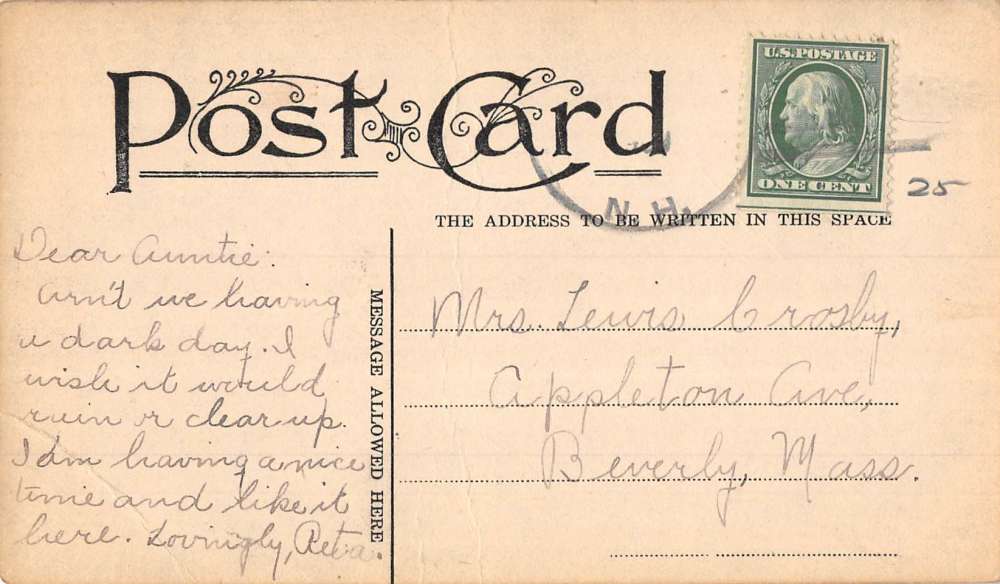 Post Card
U.S. POSTAGE
ONE CENT
25
N.H.
THE ADDRESS TO BE WRITTEN IN THIS SPACE
MESSAGE ALLOWED HERE
Dear Auntie:
Arn't we having
a dark day. I
wish it would
rain or clear up.
I am having a nice
time and like it
here. Lovingly, Reta.
Mrs. Lewis Crosby,
Appleton Ave,
Beverly, Mass.